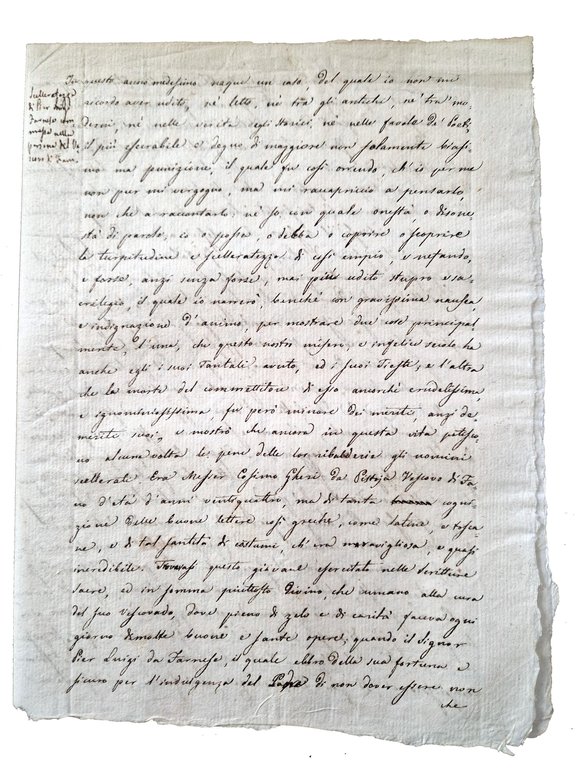 Scelleratezza
di Pier Luigi
Farnese com
messa nella
persona del Ve
scovo di Fano.
In questo anno medesimo naque un caso, del quale io non mi
ricordo aver udito, nè letto, nè tra gli antichi, nè tra mo
derni, nè nelle verità degli Storici, nè nelle favole de' Poeti,
il più esecrabile e degno di maggiore non solamente biasi,
mo ma punizione, il quale fu così orrendo, ch'io per me
non pur mi vergogno, ma mi raccapriccio a pensarlo,
non che a raccontarlo: nè so con quale onestà o disone,
stà di parole, io o possa, o debba o coprire o scoprire
la turpitudine e scelleratezza di così empio, e nefando,
e forse, anzi senza forse, mai udito stupro e sa,
crilegio, il quale io narrerò, benchè con gravissima nausea,
e indignazione d'animo, per mostrare due cose principal
mente, l'una, che questo nostri misero, e infelice secolo ha
anche egli i suoi Tantali avuto, ed i suoi Tieste, e l'altra
che la morte del commettitore di esso ancorchè crudelissima,
e ignominiosissima, fu però minore dei meriti, anzi de,
meriti suoi, e mostrò che ancora in questa vita patisco,
no alcuna volta le pene delle lor ribalderie gli uomini
scellerati Era Messer Cosimo Gheri da Pistoja Vescovo di Fa,
no d'età d'anni ventiquattro, ma di tanta cogni,
zione delle buone lettere così greche, come latine, e tosca,
ne, e di tal santità di costumi, ch'era maravigliosa, e quasi
incredibile. questo giovane esercitato nelle scritture
sacre, ed in somma piuttosto Divino che umano alla cura
del suo Vescovado, dove pieno di zelo e di carità faceva ogni
giorno dimolte buone e sante opere, quando il Signor
Pier Luigi da Farnese il quale ebbro della sua fortuna e
sicuro per l'indulgenza del Padre di non dover essere non
che